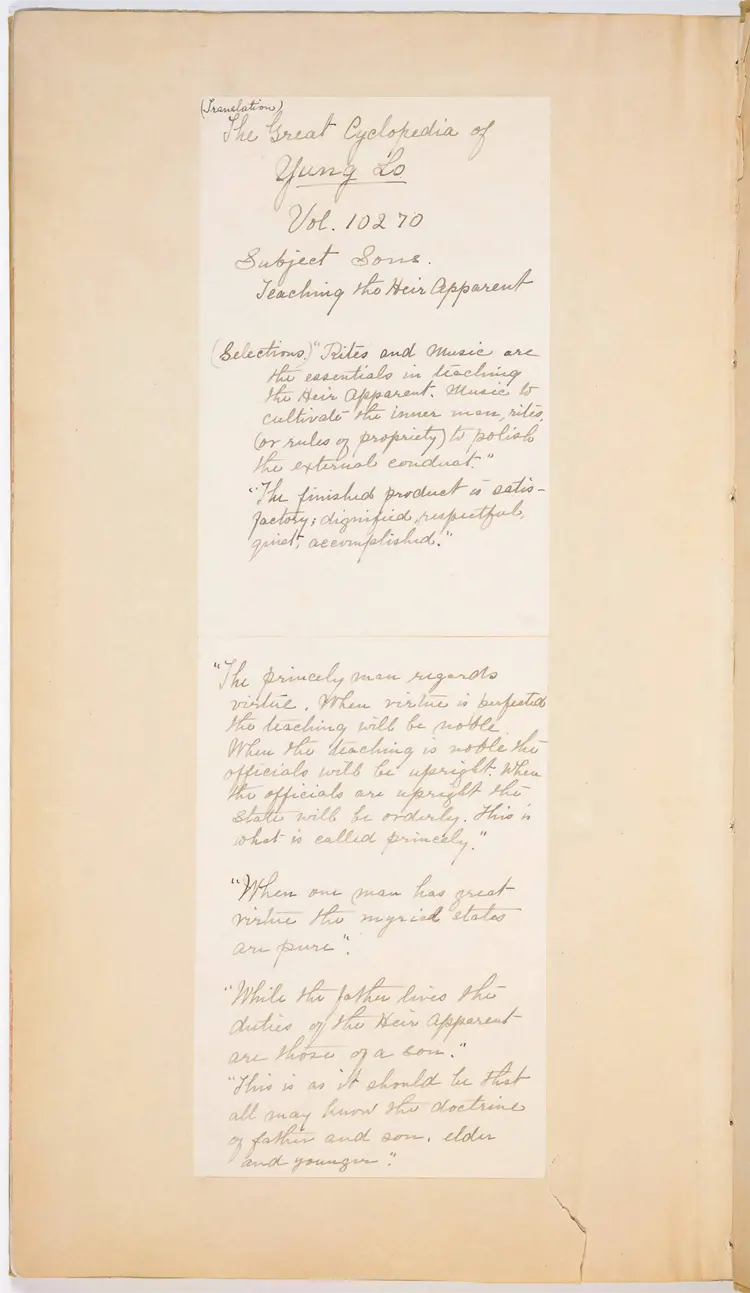 (Translation)
The Great Cyclopedia of
Yung Lo
Vol. 10270
Subject Sons.
Teaching the Heir Apparent
(Selections.) "Rites and Music are
the essentials in teaching
the Heir Apparent. Music to
cultivate the inner man, rites,
(or rules of propriety) to polish
the external conduct."
"The finished product is satis-
factory; dignified, respectful,
quiet, accomplished."
"The princely man regards
virtue. When virtue is perfected
the teaching will be noble.
When the teaching is noble the
officials will be upright. When
the officials are upright the
State will be orderly. This is
what is called princely."
"When one man has great
virtue the myriad states
are pure".
"While the father lives the
duties of the Heir Apparent
are those of a son."
"This is as it should be that
all may know the doctrine
of father and son, elder
and younger".